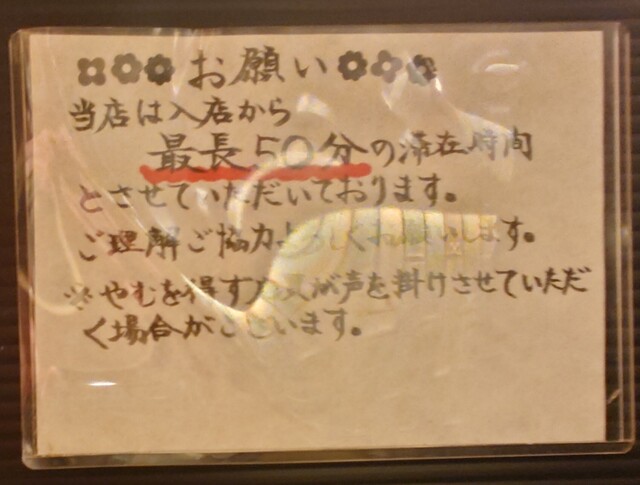 お願い
当店は入店から
最長50分の滞在時間
とさせていただいております。
ご理解ご協力よろしくお願いします。
※やむを得ず が声を掛けさせていただ
く場合がございます。